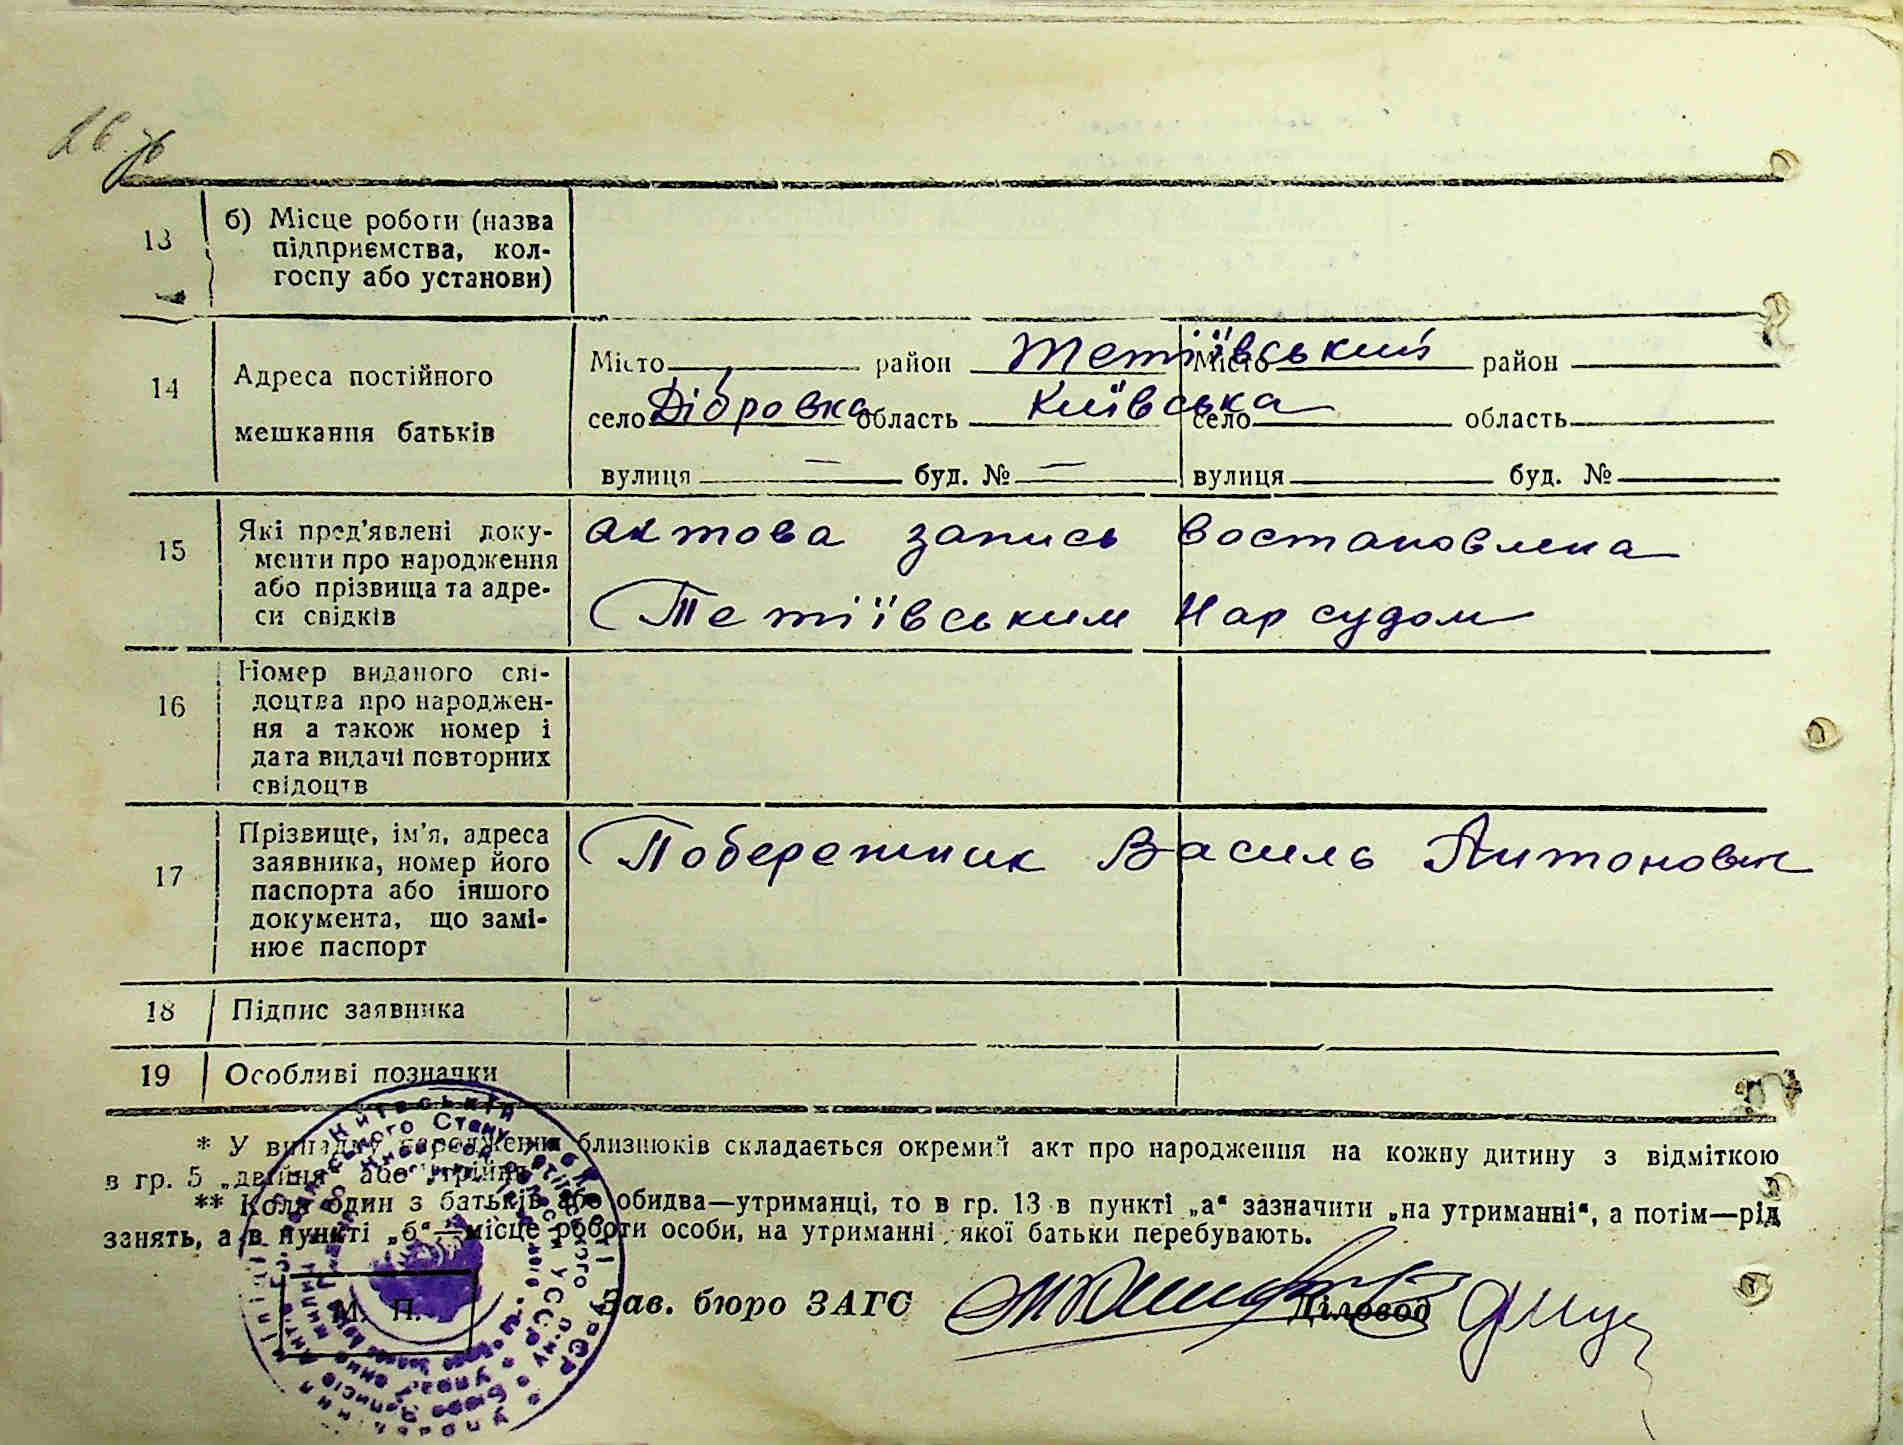 26
13 б) Місце роботи (назва
підприємства, кол-
госпу або установи)
14 Адреса постійного
мешкання батьків
Місто район Тетіївський Місто район
село Дібровка область Київська село область
вулиця — буд. № — вулиця буд. №
15 Які пред'явлені доку-
менти про народження
або прізвища та адре-
си свідків
актова запись востановлена
Тетіївським Нарсудом
16 Номер виданого сві-
доцтва про народжен-
ня а також номер і
дата видачі повторних
свідоцтв
17 Прізвище, ім'я, адреса
заявника, номер його
паспорта або іншого
документа, що замі-
нює паспорт
Побережник Василь Антонович
18 Підпис заявника
19 Особливі позначки
* У випадку народження близнюків складається окремий акт про народження на кожну дитину з відміткою
в гр. 5 „двійня" або „трійня"
** Коли один з батьків або обидва—утриманці, то в гр. 13 в пункті „а" зазначити „на утриманні", а потім—рід
занять, а в пункті „б"—місце роботи особи, на утриманні якої батьки перебувають.
М. П. Зав. бюро ЗАГС Діловод